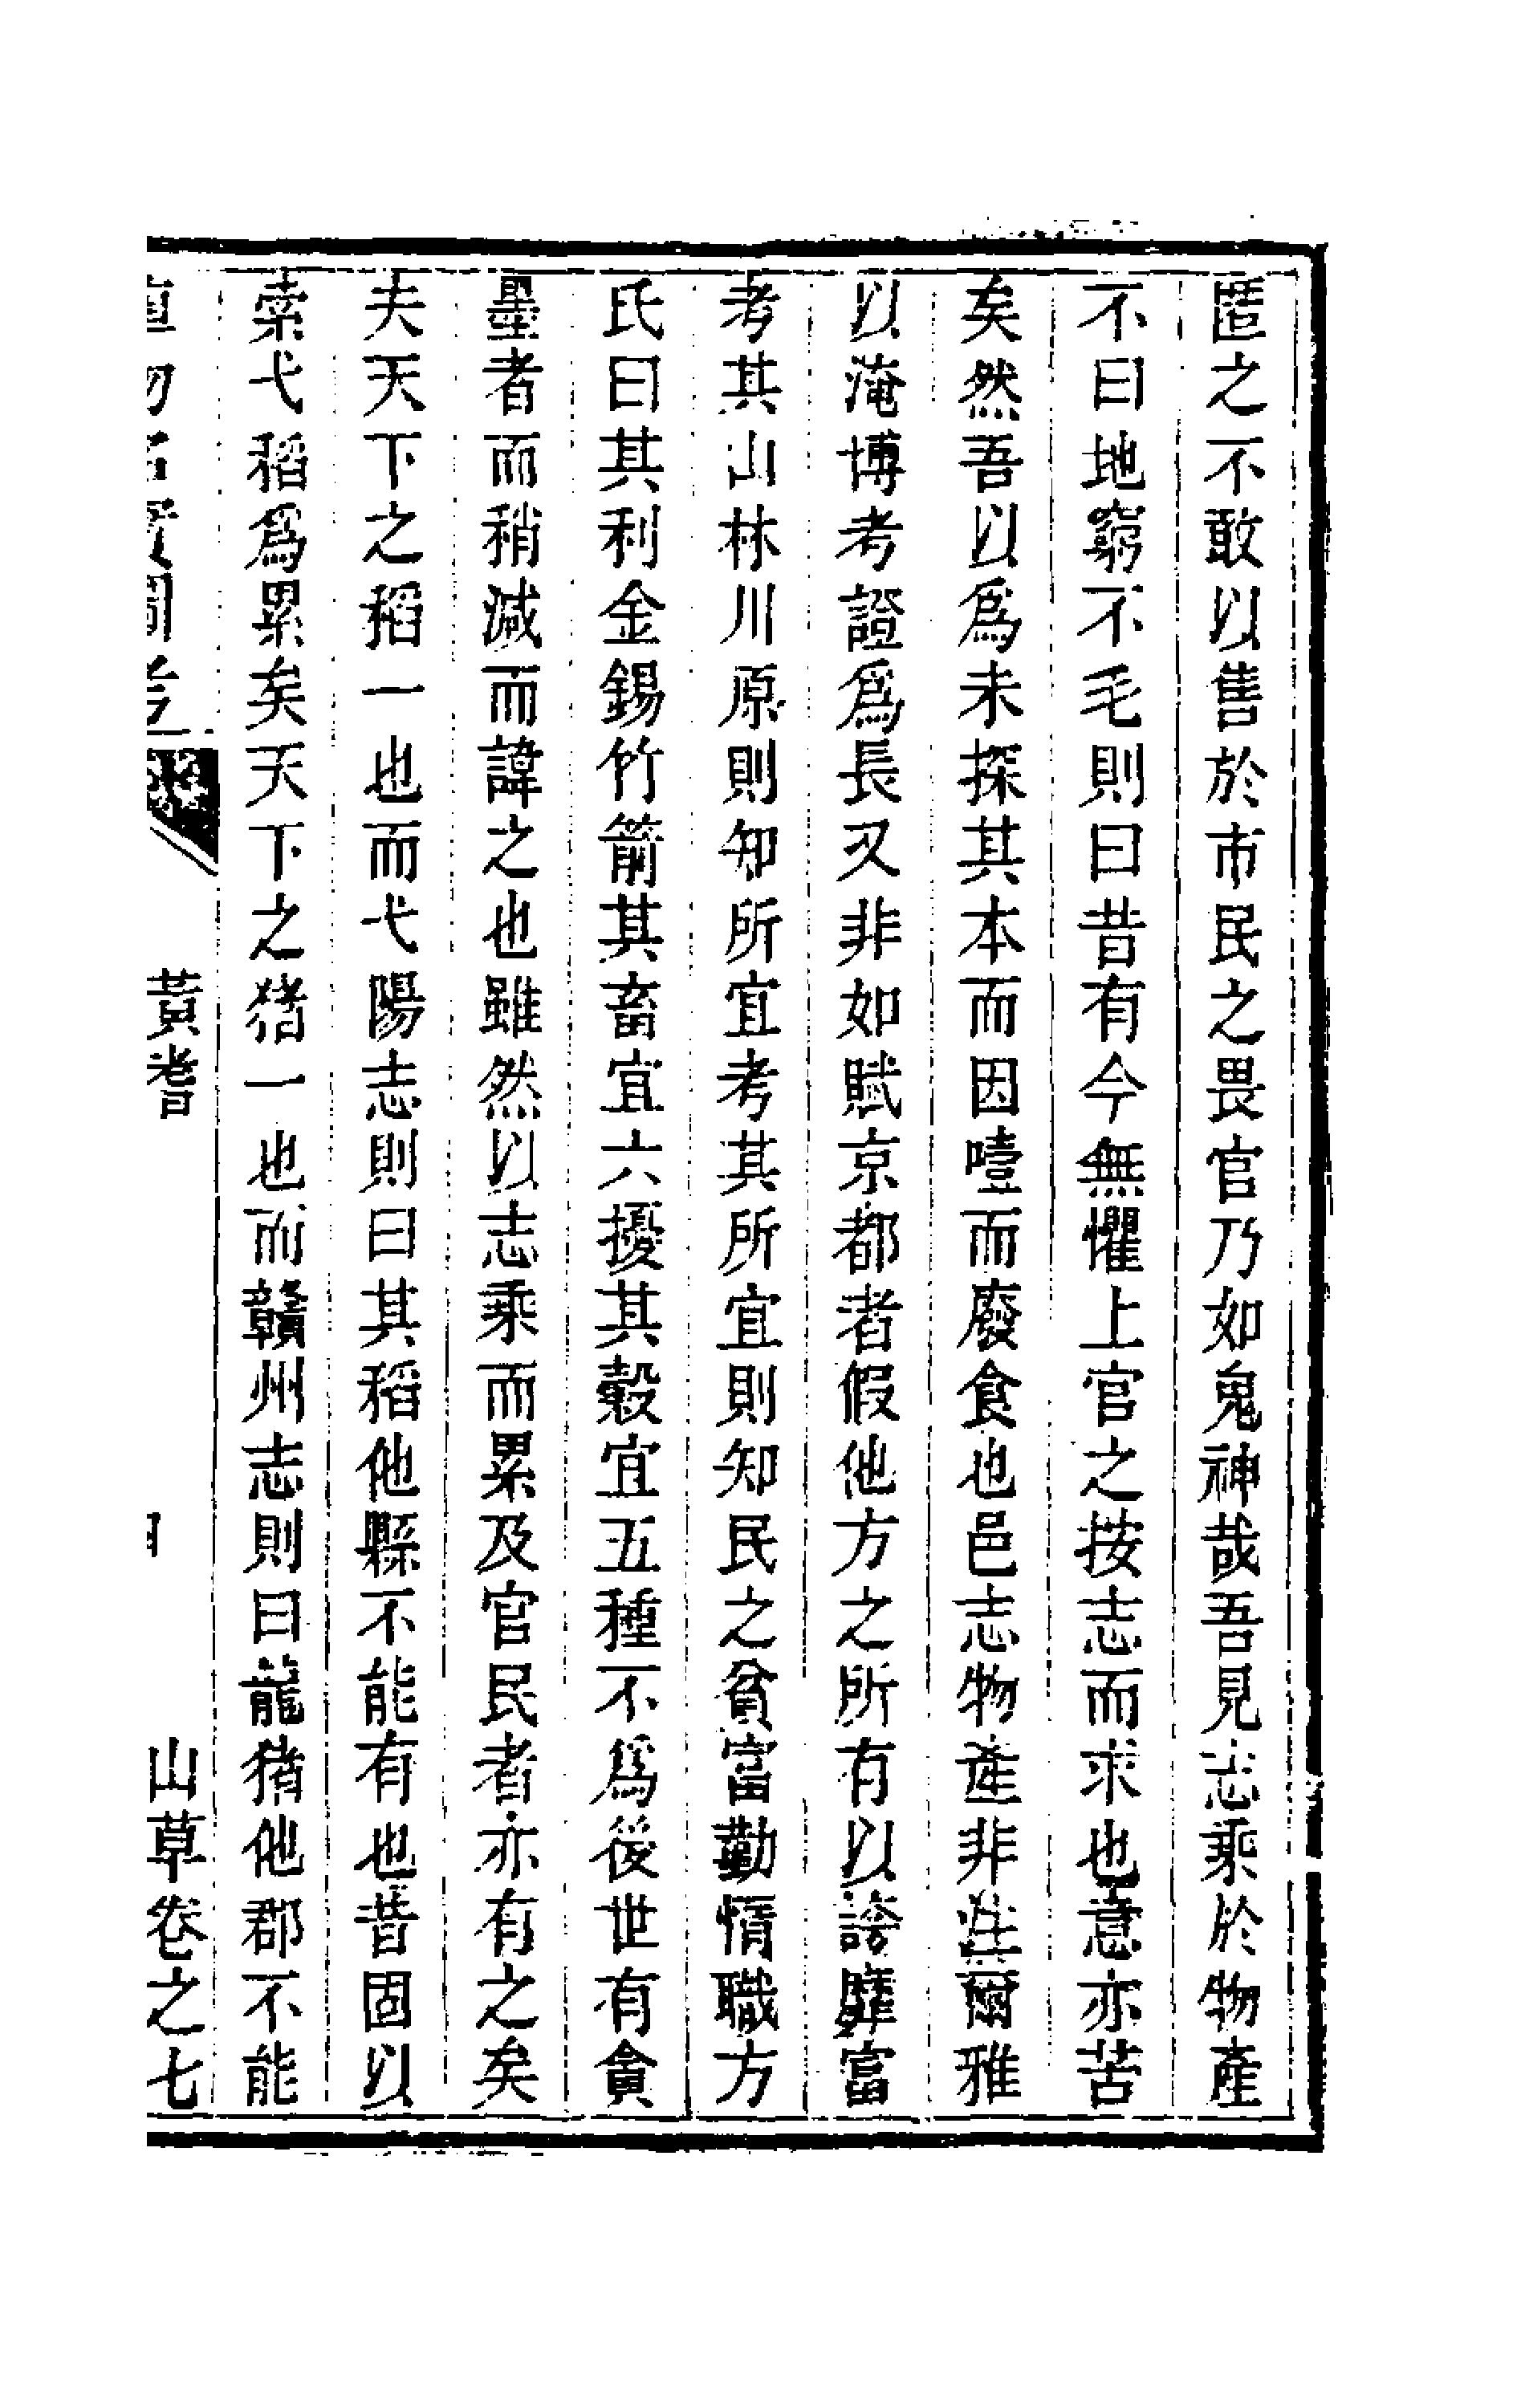 匿之不敢以售於市民之畏官乃如鬼神哉吾見志乘於物產
不曰地窮不毛則曰昔有今無懼上官之按志而求也意亦苦
矣然吾以爲未探其本而因噎而廢食也邑志物產非注爾雅
以淹博考證爲長又非如賦京都者假他方之所有以誇靡富
考其山林川原則知所宜考其所宜則知民之貧富勤惰職方
氏曰其利金錫竹箭其畜宜六擾其穀宜五種不爲後世有貪
墨者而稍減而諱之也雖然以志乘而累及官民者亦有之矣
夫天下之稻一也而弋陽志則曰其稻他縣不能有也昔固以
索弋稻爲累矣天下之猪一也而贛州志則曰龍猪他郡不能
植物名實圖考 黃耆 山草卷之七